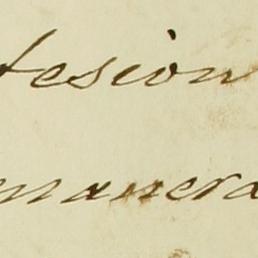 tesion
manera